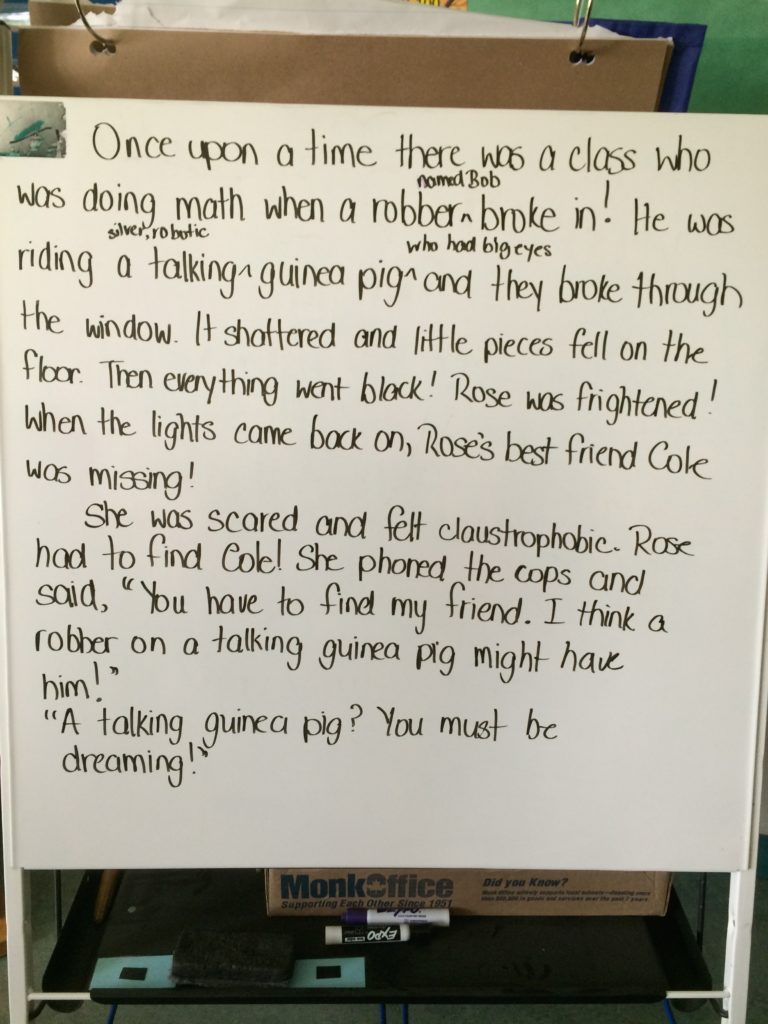 Once upon a time there was a class who
was doing math when a robber ^ named Bob broke in! He was
riding a talking ^ silver, robotic guinea pig ^ who had big eyes and they broke through
the window. It shattered and little pieces fell on the
floor. Then everything went black! Rose was frightened!
When the lights came back on, Rose's best friend Cole
was missing!
She was scared and felt claustrophobic. Rose
had to find Cole! She phoned the cops and
said, "You have to find my friend. I think a
robber on a talking guinea pig might have
him!"
"A talking guinea pig? You must be
dreaming!"
MonkOffice
Supporting Each Other Since 1951
Did you Know?
EXPO
EXPO